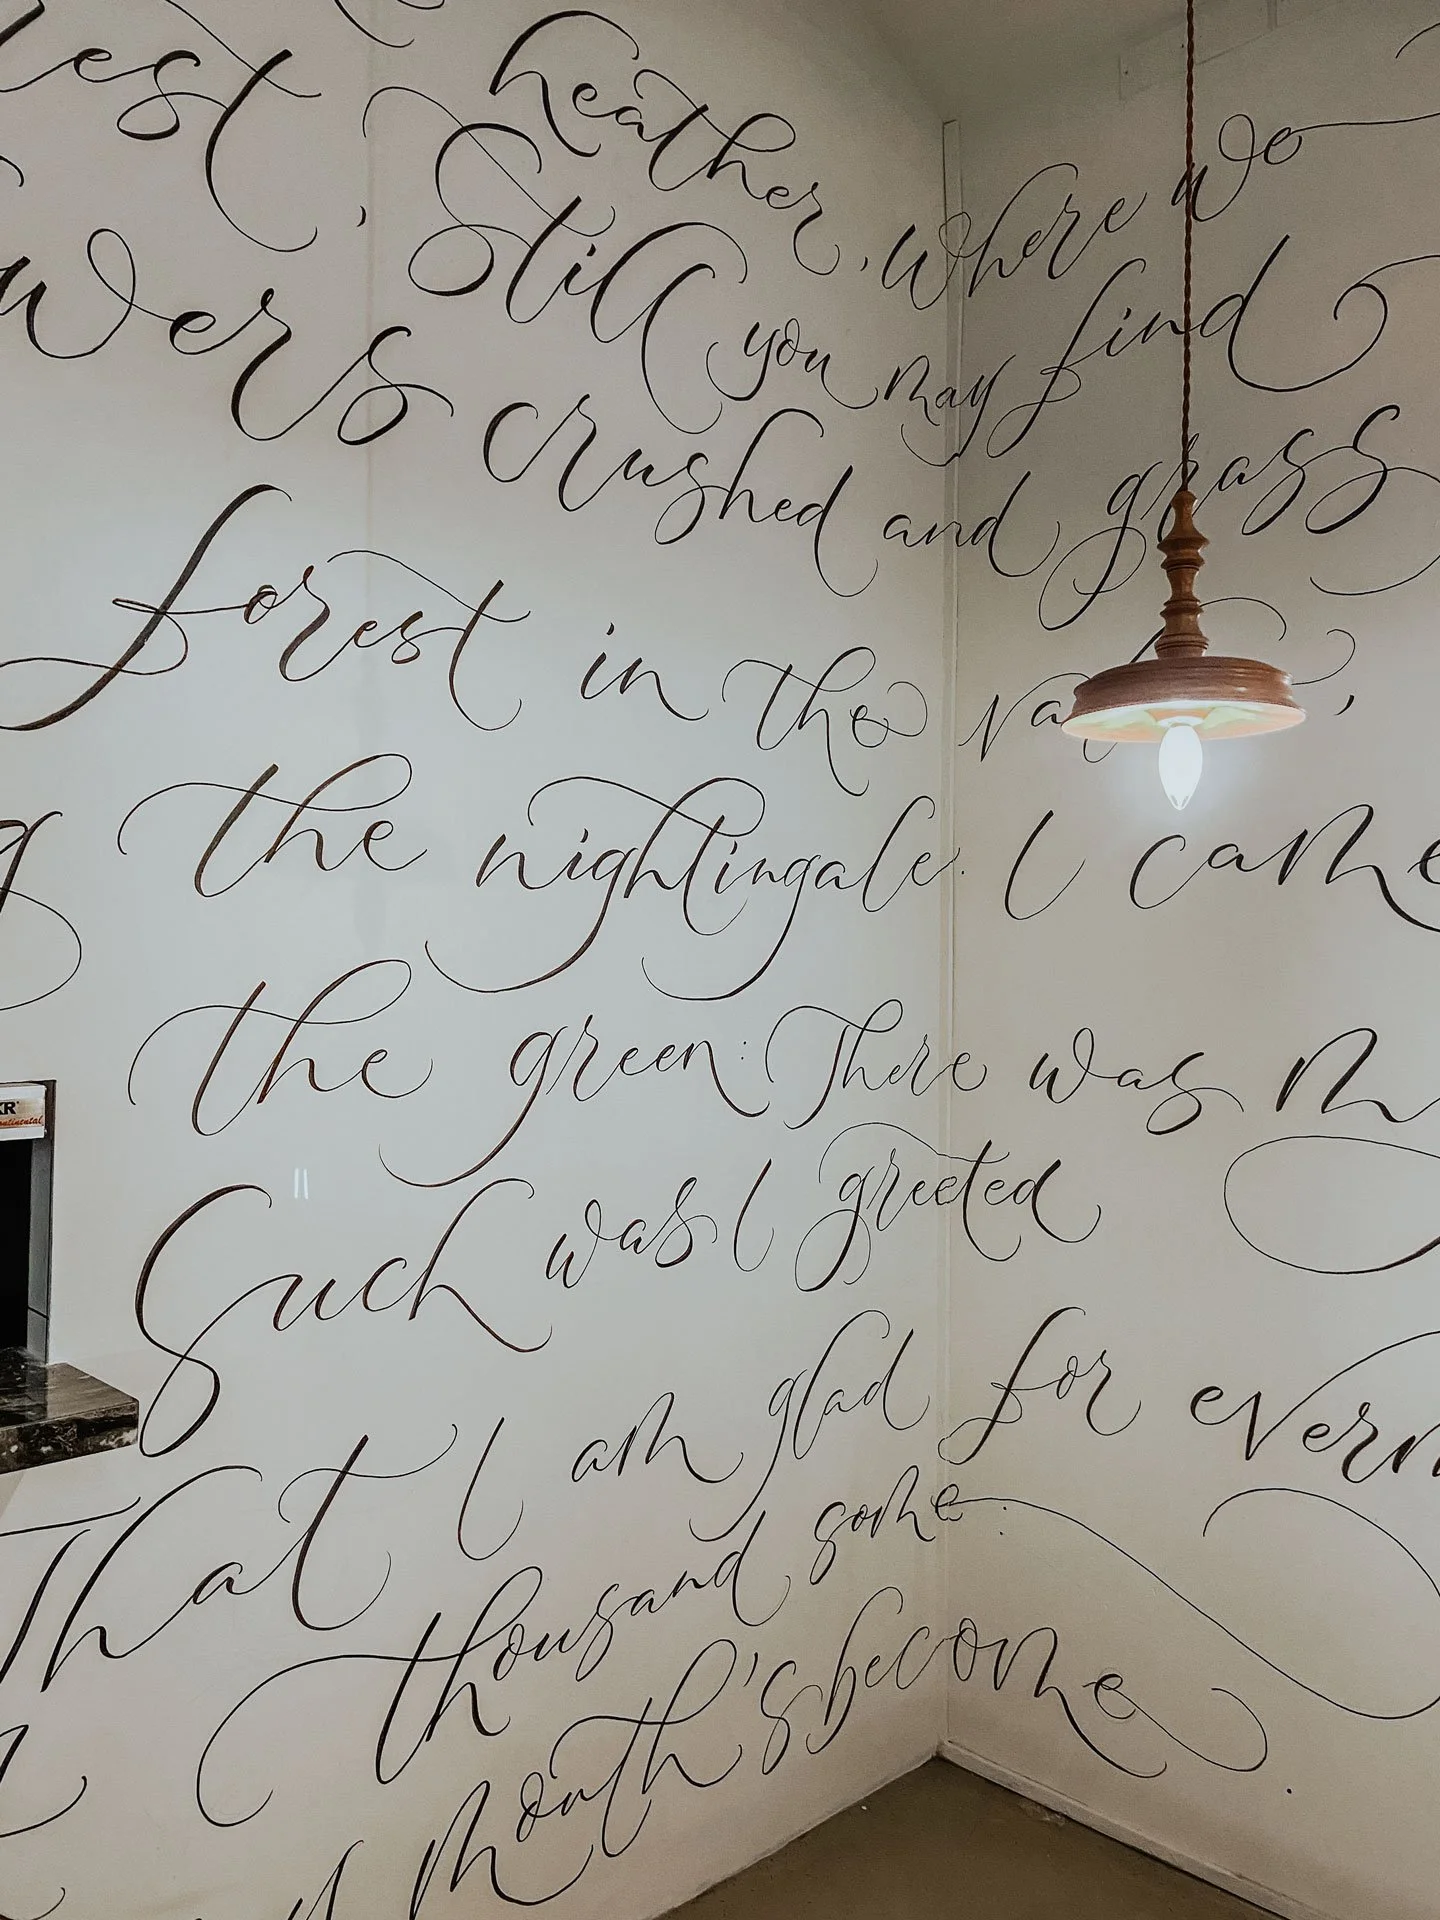 est, heather, where wo
Still you may find
wers crushed and grass
forest in the
g the nightingale. I came
the green: There was m
Such was I greeted
That I am glad for everm
thousand some.
mouth's become.
KR
Continental